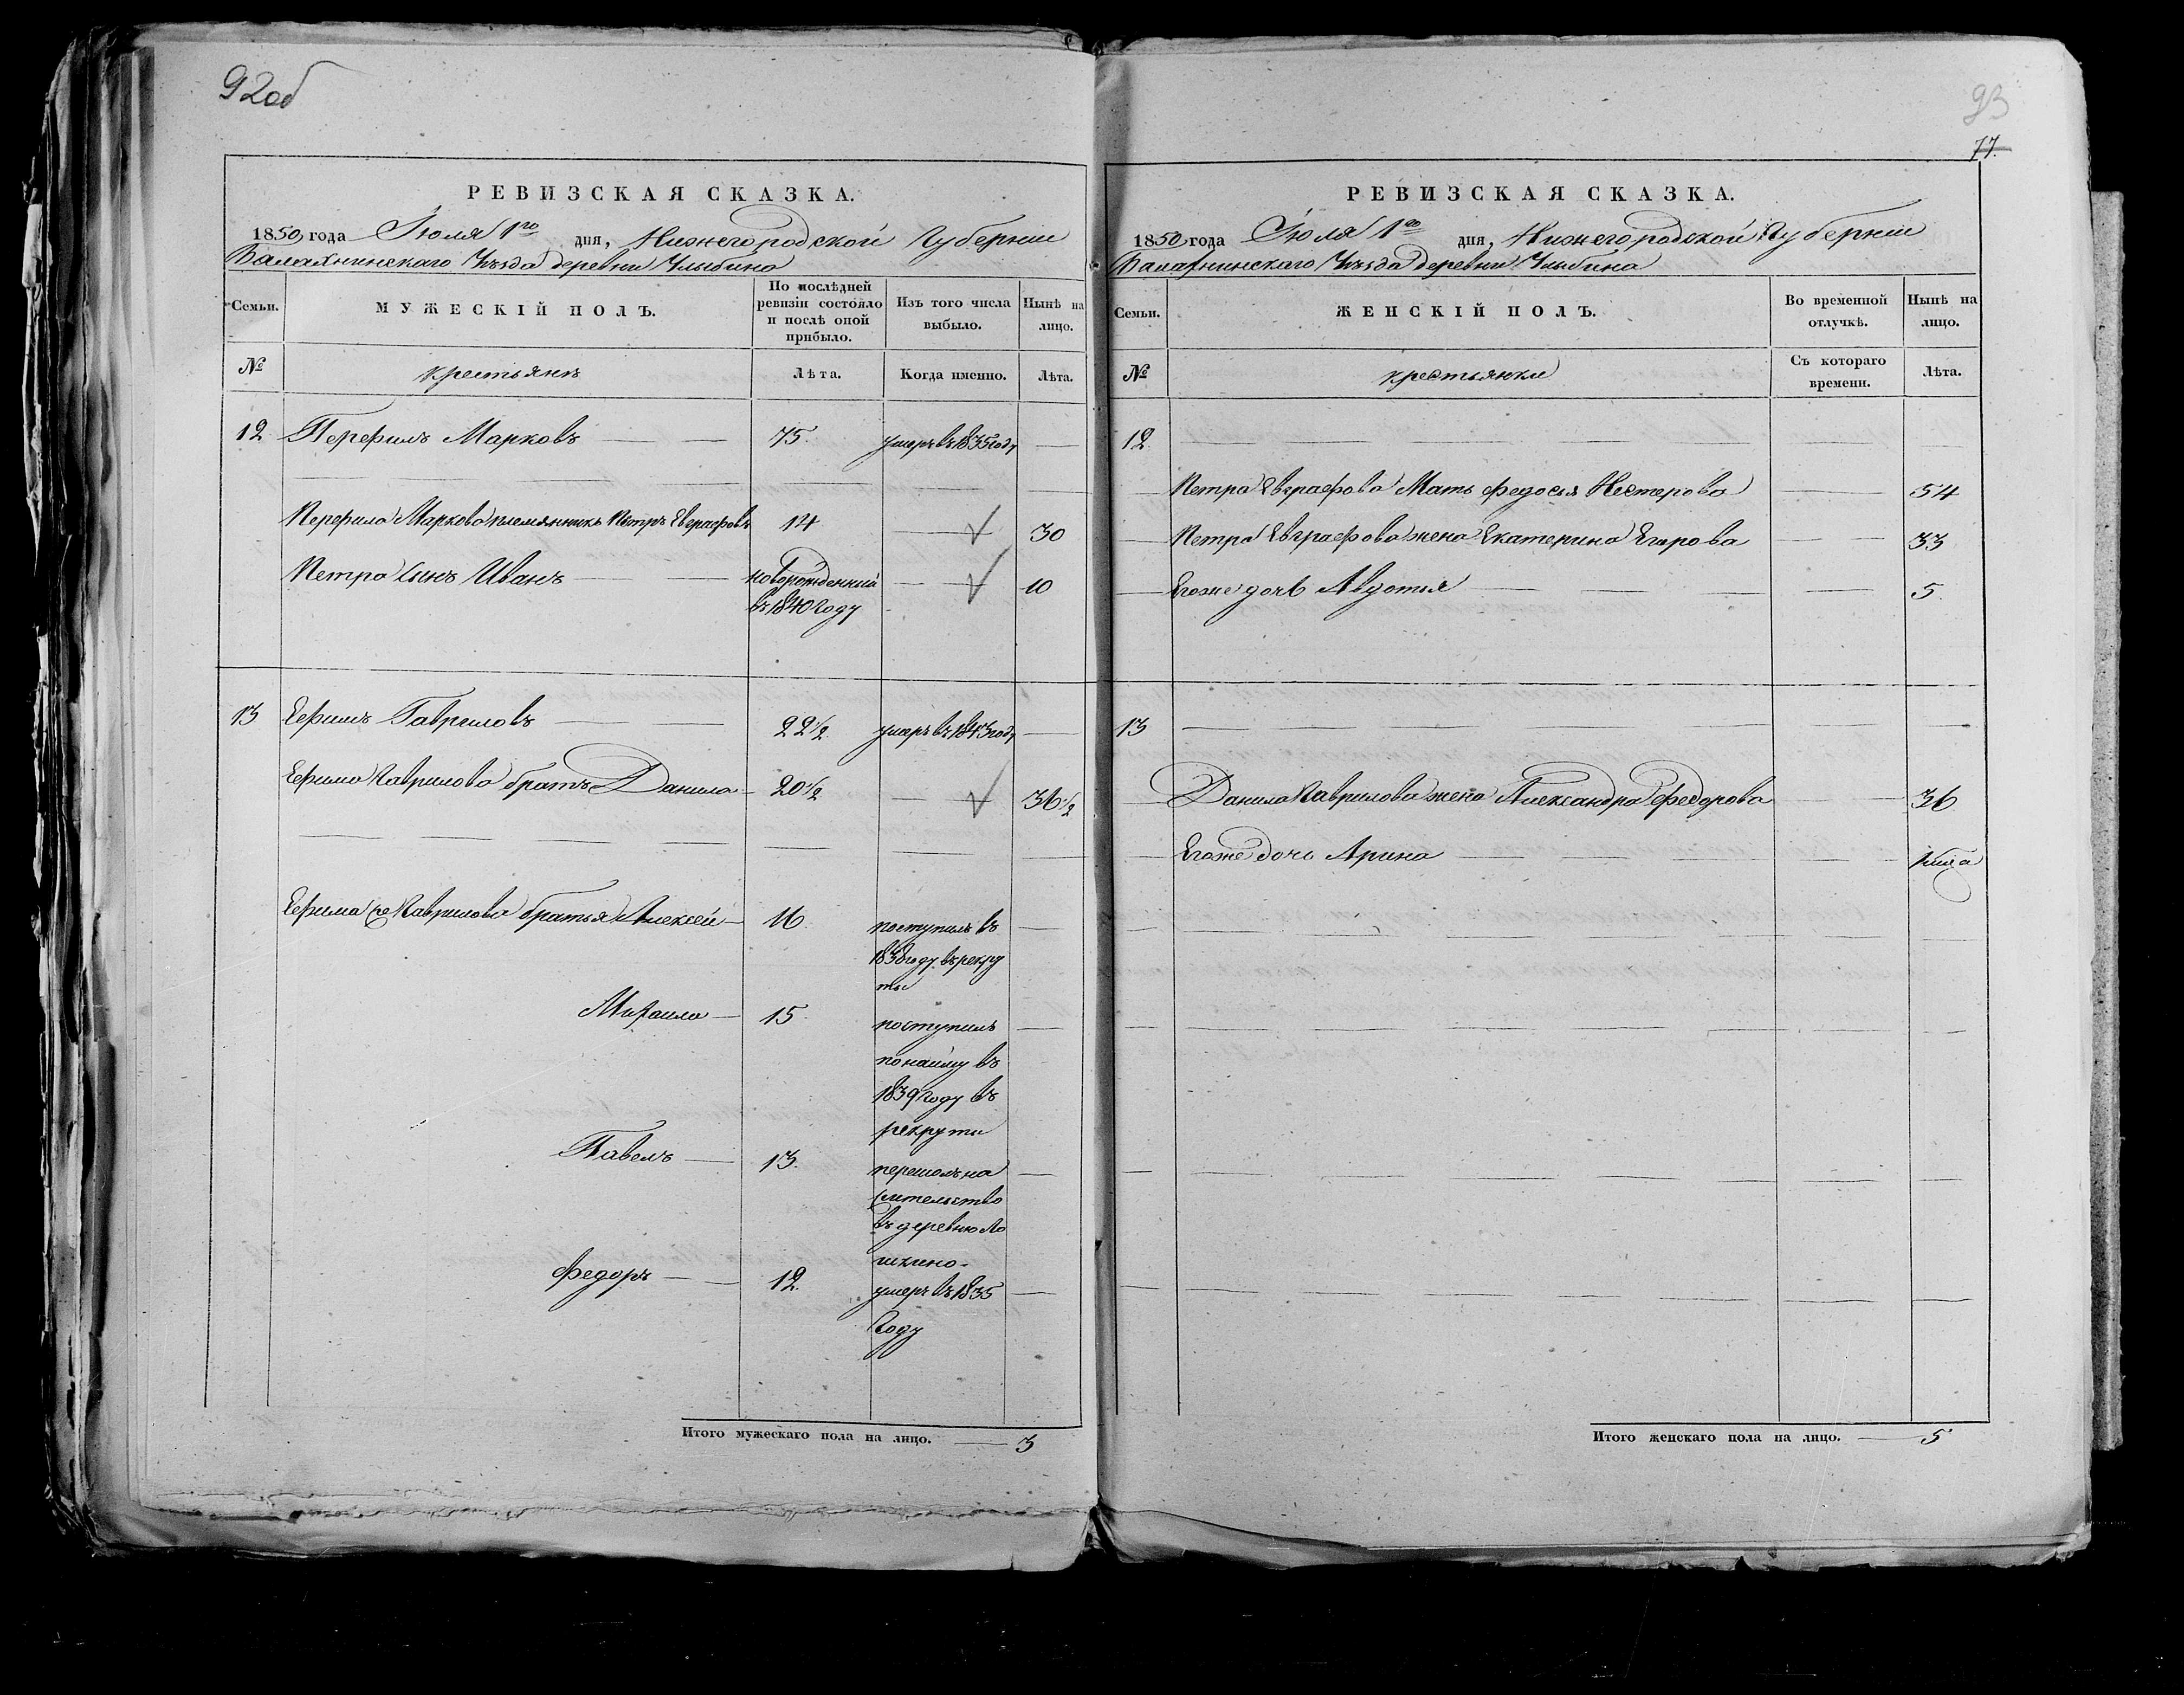 92об
РЕВИЗСКАЯ СКАЗКА.
1850 года Іюля 1го дня, Нижегородской Губерніи
Балахнинскаго Уѣзда деревни Улыбина
Семьи.
МУЖЕСКІЙ ПОЛЪ.
По послѣдней ревизіи состояло и послѣ оной прибыло.
Изъ того числа выбыло.
Нынѣ на лицо.
№ крестьянъ Лѣта. Когда именно. Лѣта.
12 Перфилъ Марковъ 75. умеръ въ 1835 году
Перфила Маркова племянникъ Петръ Евграфовъ 14 30
Петра сынъ Иванъ новорожденный 10
въ 1840 году
13 Ефимъ Гавриловъ 22 1/2 умеръ въ 1843 году
Ефима Гаврилова братъ Данила 20 1/2 36 1/2
Ефима Гаврилова братья Алексей 16 поступилъ въ
1838 году въ рекру
ты
Михаила 15. поступилъ
по найму въ
1839 году въ
рекруты
Павелъ 13. перешолъ на
жительство
въ деревню Ло
шкино
Федоръ 12. умеръ въ 1835
году
Итого мужескаго пола на лицо. 3
93
77.
РЕВИЗСКАЯ СКАЗКА.
1850 года Іюля 1го дня, Нижегородской Губерніи
Балахнинскаго Уѣзда деревни Улыбина
Семьи.
ЖЕНСКІЙ ПОЛЪ.
Во временной отлучкѣ.
Нынѣ на лицо.
№ крестьянки Съ котораго времени. Лѣта.
12
Петра Евграфова Мать Федосья Нестерова 54
Петра Евграфова жена Екатерина Егорова 33
Егоже дочь Авдотья 5.
13
Данила Гаврилова жена Александра Федорова 36
Егоже дочь Арина
Итого женскаго пола на лицо. 5